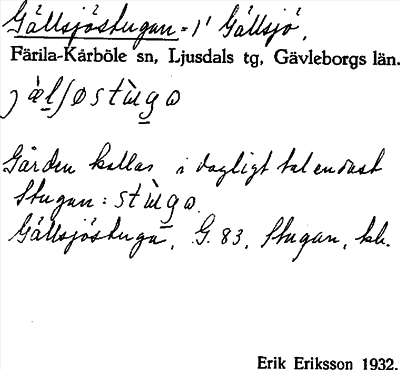 Gällsjöstugan = 1' Gällsjö,
Färila-Kårböle sn, Ljusdals tg, Gävleborgs län.
jàlʃøstùgo
Gården kallas i dagligt tal endast
Stugan: stùgo.
Gällsjöstuga, G. 83, Stugan, kb.
Erik Eriksson 1932.